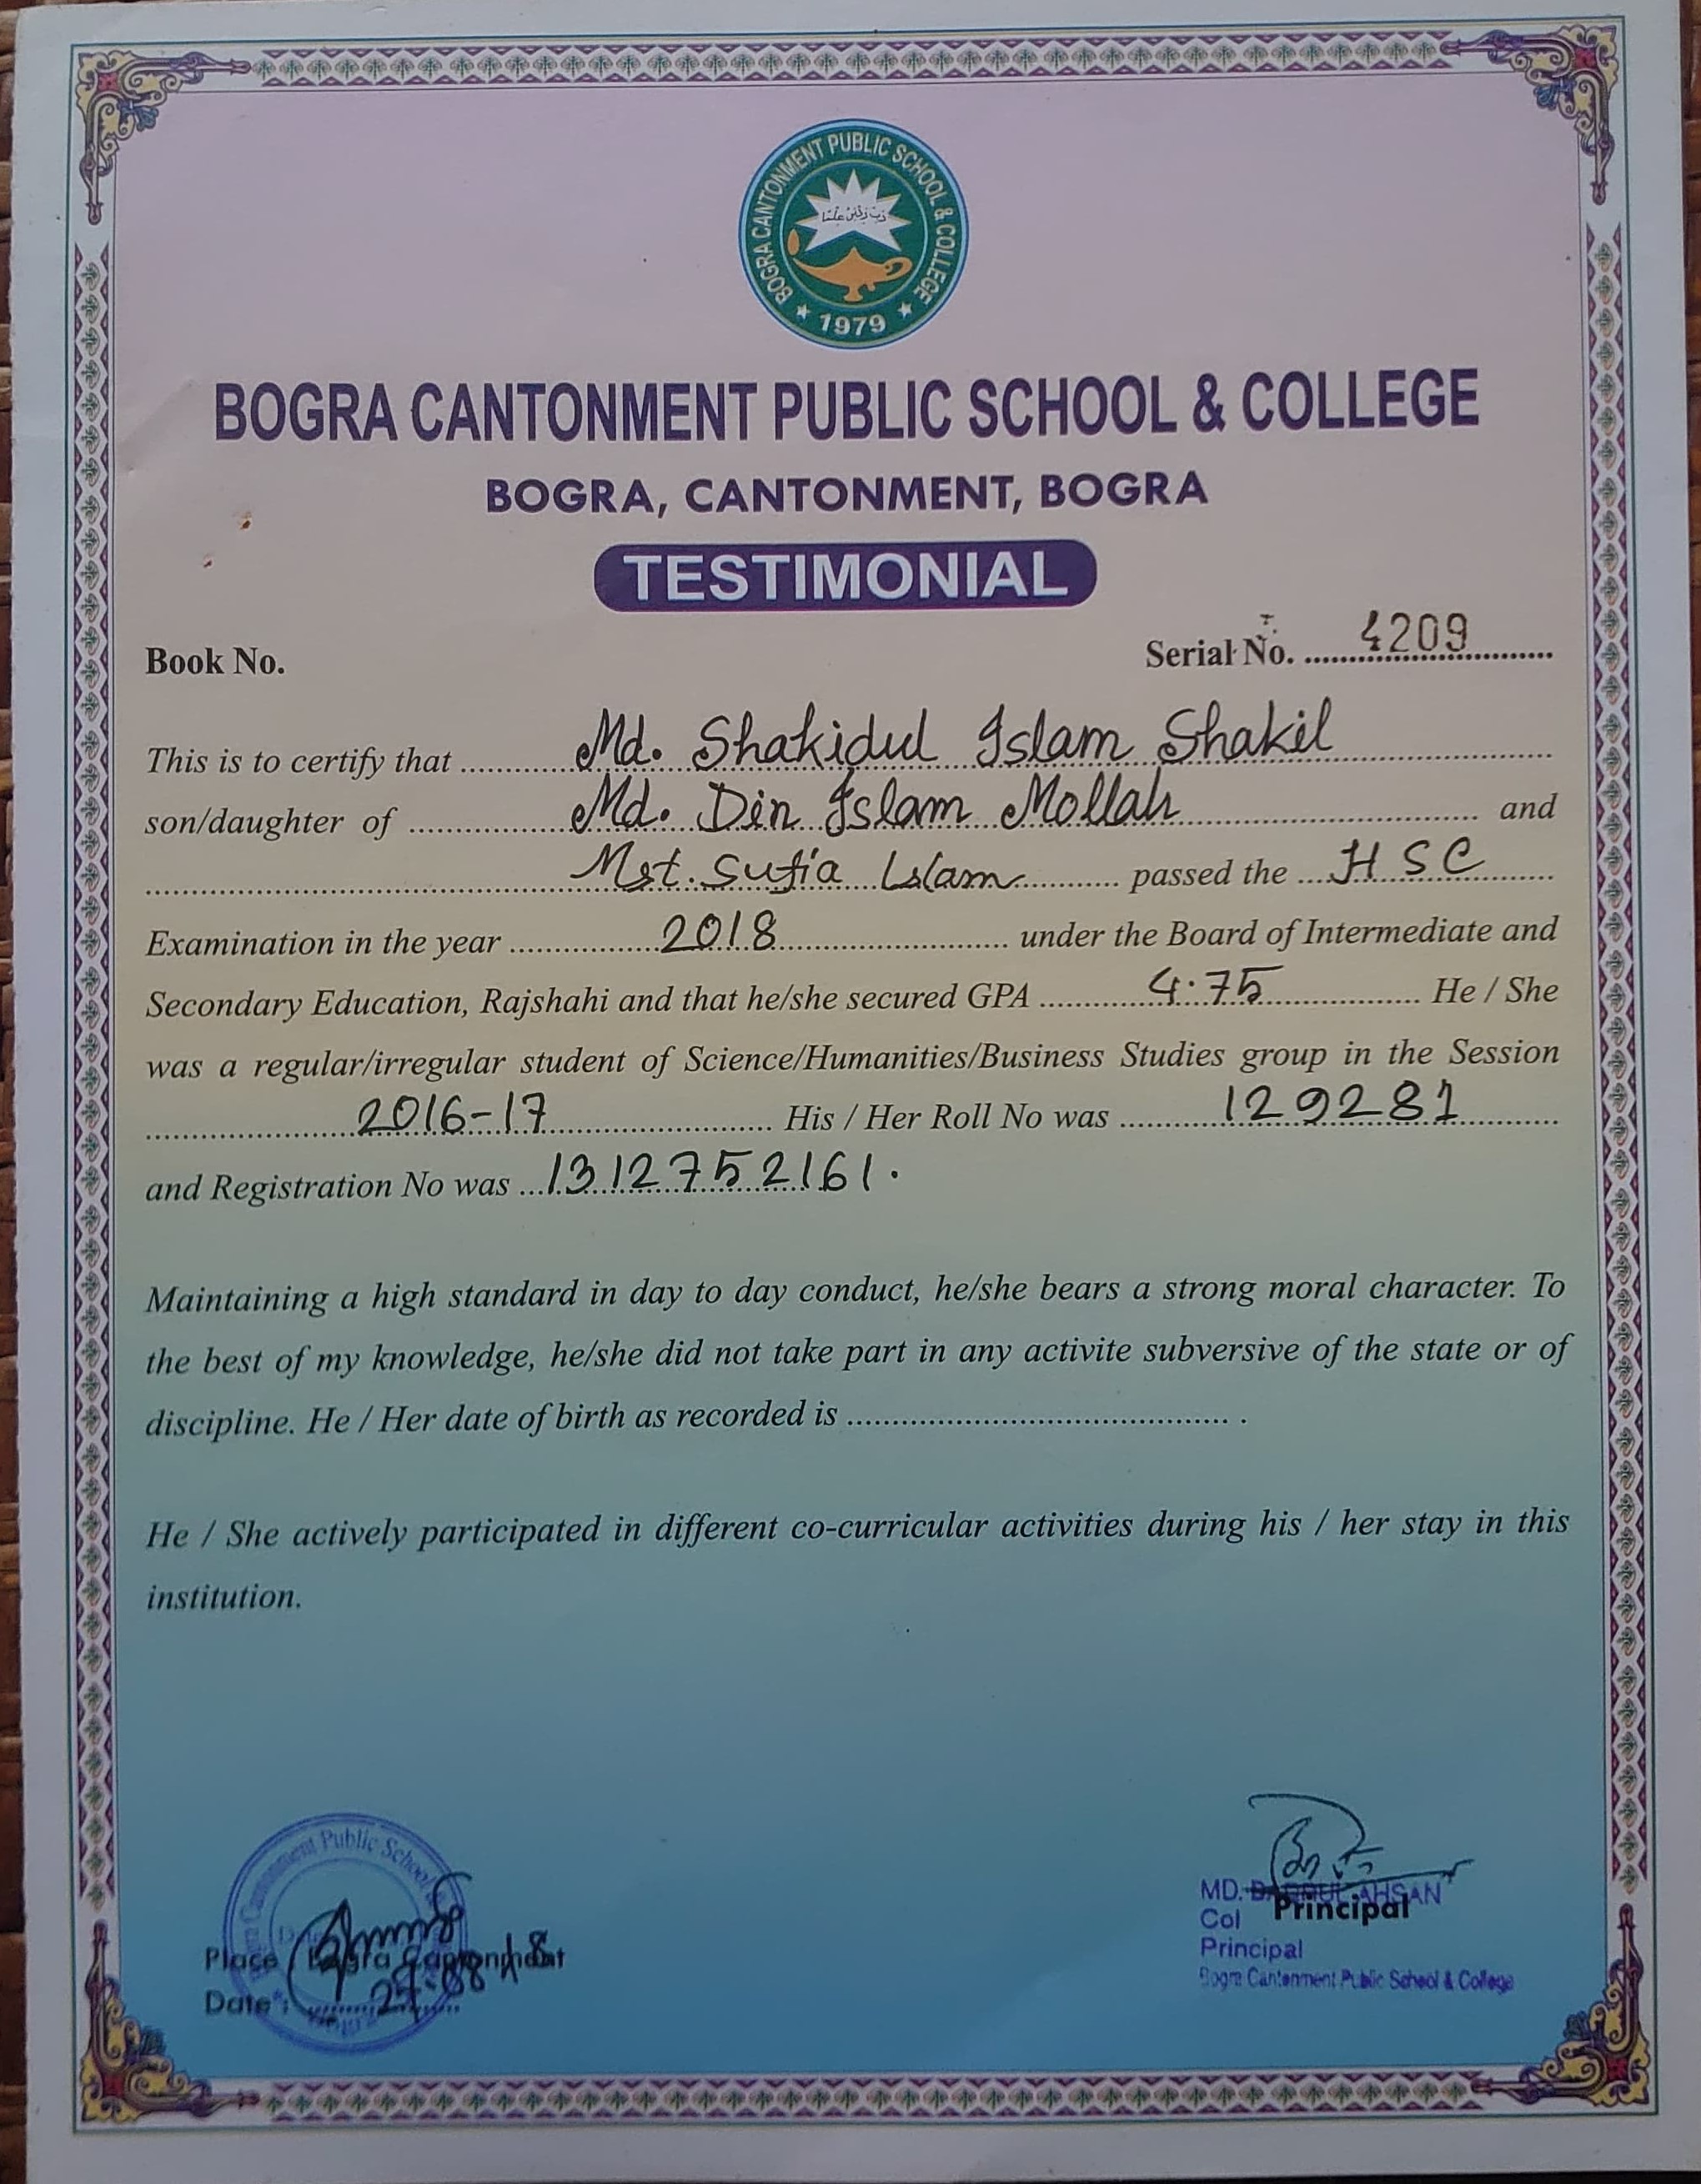 BOGRA CANTONMENT PUBLIC SCHOOL & COLLEGE
★ 1979 ★
BOGRA CANTONMENT PUBLIC SCHOOL & COLLEGE
BOGRA, CANTONMENT, BOGRA
TESTIMONIAL
Book No. Serial No. 4209
This is to certify that Md. Shakidul Islam Shakil
son/daughter of Md. Din Islam Mollah and
Mst. Sufia Islam passed the HSC
Examination in the year 2018 under the Board of Intermediate and
Secondary Education, Rajshahi and that he/she secured GPA 4.75 He / She
was a regular/irregular student of Science/Humanities/Business Studies group in the Session
2016-17 His / Her Roll No was 129281
and Registration No was 1312752161.
Maintaining a high standard in day to day conduct, he/she bears a strong moral character. To
the best of my knowledge, he/she did not take part in any activite subversive of the state or of
discipline. He / Her date of birth as recorded is .
He / She actively participated in different co-curricular activities during his / her stay in this
institution.
Public School
Place Bogra Cantonment
Date :
MD. AHSAN
Principal
Col
Principal
Bogra Cantonment Public School & College